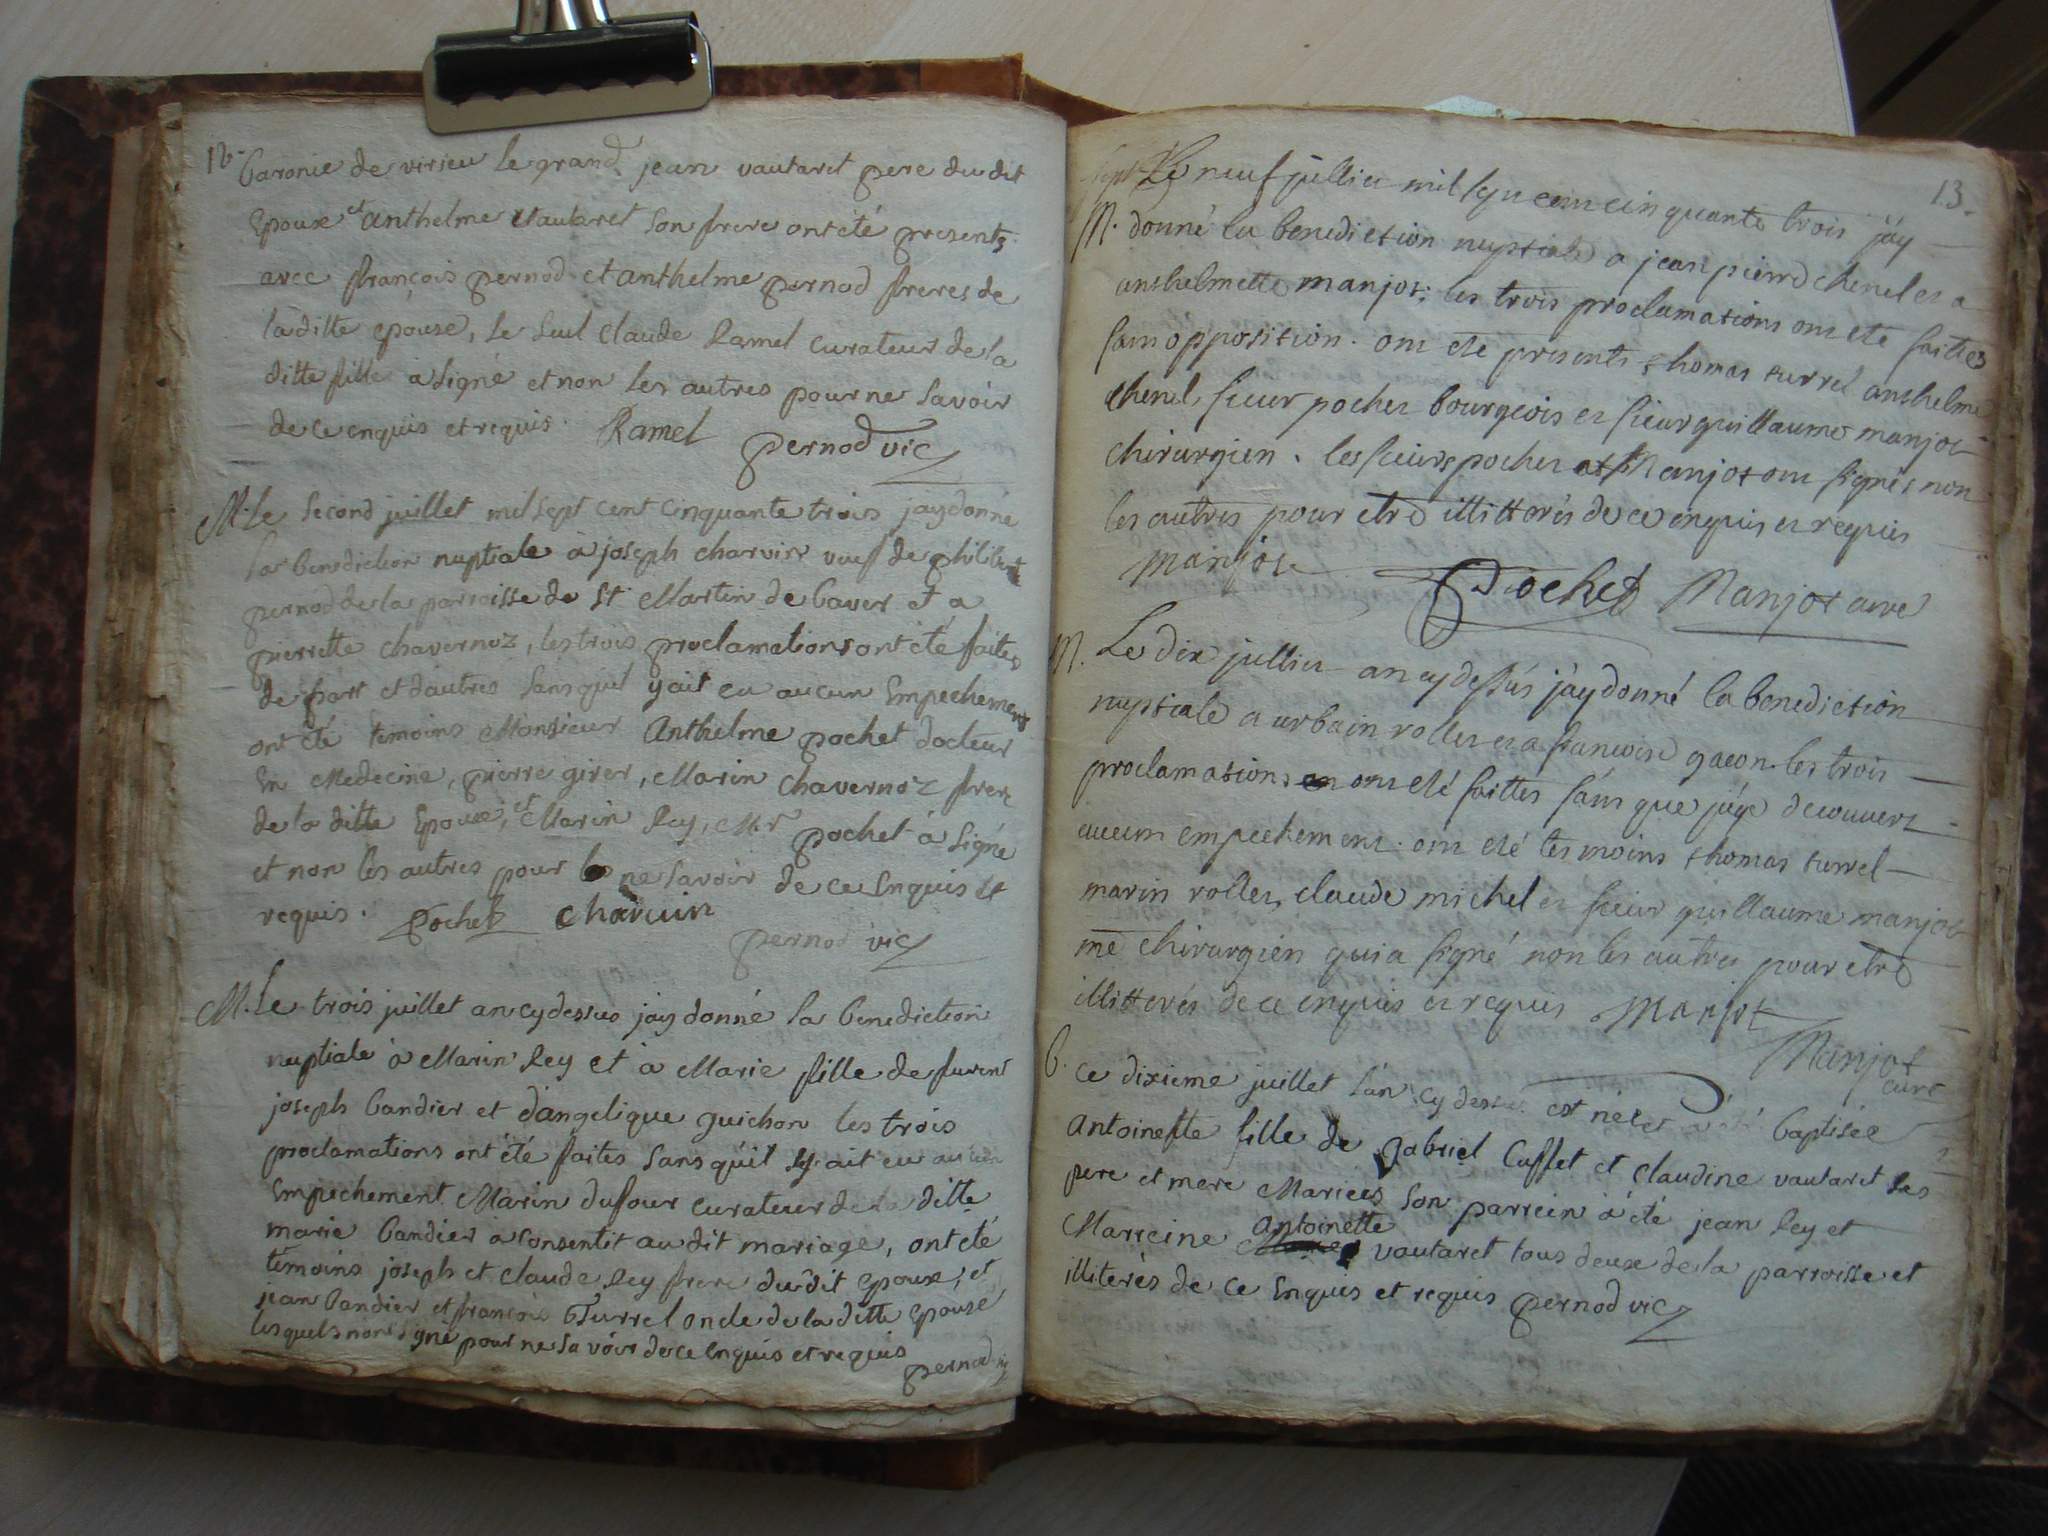 12.
baronie de virieu le grand. jean vautaret pere du dit
Epoux et anthelme vautaret son frere ont été presents
avec françois pernod et anthelme pernod freres de
la ditte epouse, le seul claude Ramel curateur de la
ditte fille a signé et non les autres pour ne savoir
de ce enquis et requis. Ramel pernod vic
M. Le second juillet mil sept cent cinquante trois jay donné
la benediction nuptiale à joseph charvin veuf de philiberte
pernod de la parroisse de st Martin de baver et a
pierrette chavernoz, les trois proclamations ont été faites
de part et dautres sans quil y ait eu aucun Empechement
ont été temoins Monsieur Anthelme pochet docteur
En Medecine, pierre girer, Marin chavernoz frere
de la ditte Epouse, et Marin Rey, Mr pochet à signé
et non les autres pour ne savoir de ce Enquis et
requis. Pochet charvin
pernod vic
M. Le trois juillet an cy dessus jay donné la benediction
nuptiale à Marin Rey et à Marie fille de furent
joseph bandier et d'angelique guichon les trois
proclamations ont été faites sans qu'il y ait eu aucun
Empechement Marin dufour curateur de la ditte
marie bandier a consentit au dit mariage, ont été
temoins joseph et claude Rey frere du dit epoux, et
jean bandier et françois Turrel oncle de la ditte epouse
lesquels nont signé pour ne savoir de ce enquis et requis
pernod vic
13.
Le neuf jullier mil sept cent cinquante trois j'ay
M. donné la benediction nuptiale a jean pierre chenel et a
anthelmette manjot; les trois proclamations ont eté faittes
sans opposition. ont eté presents thomas turrel anthelme
chenel, sieur pochet bourgeois et sieur guillaume manjot
chirurgien. les sieurs pochet et Manjot ont signés non
les autres pour etre illitterés de ce enquis et requis
manjot Pochet Manjot curé
M. Le dix jullier an cy dessus j'ay donné la benediction
nuptiale a urbain rollet et a francoise gacon. les trois
proclamations ont eté faittes sans que j'aye decouvert
aucun empeckement. ont eté tesmoins thomas turrel
marin rollet, claude michel et sieur guillaume manjot
me chirurgien qui a signé non les autres pour etre
illitterés de ce enquis et requis Manjot
Manjot
curé
b. ce dixieme juillet l'an cy dessus est née et a été baptisée
Antoinette fille de gabriel Cuffet et claudine vautaret ses
pere et mere Mariees son parrein à été jean Rey et
Antoinette
Marreine vautaret tous deux de la parroisse et
illiterès de ce Enquis et requis pernod vic